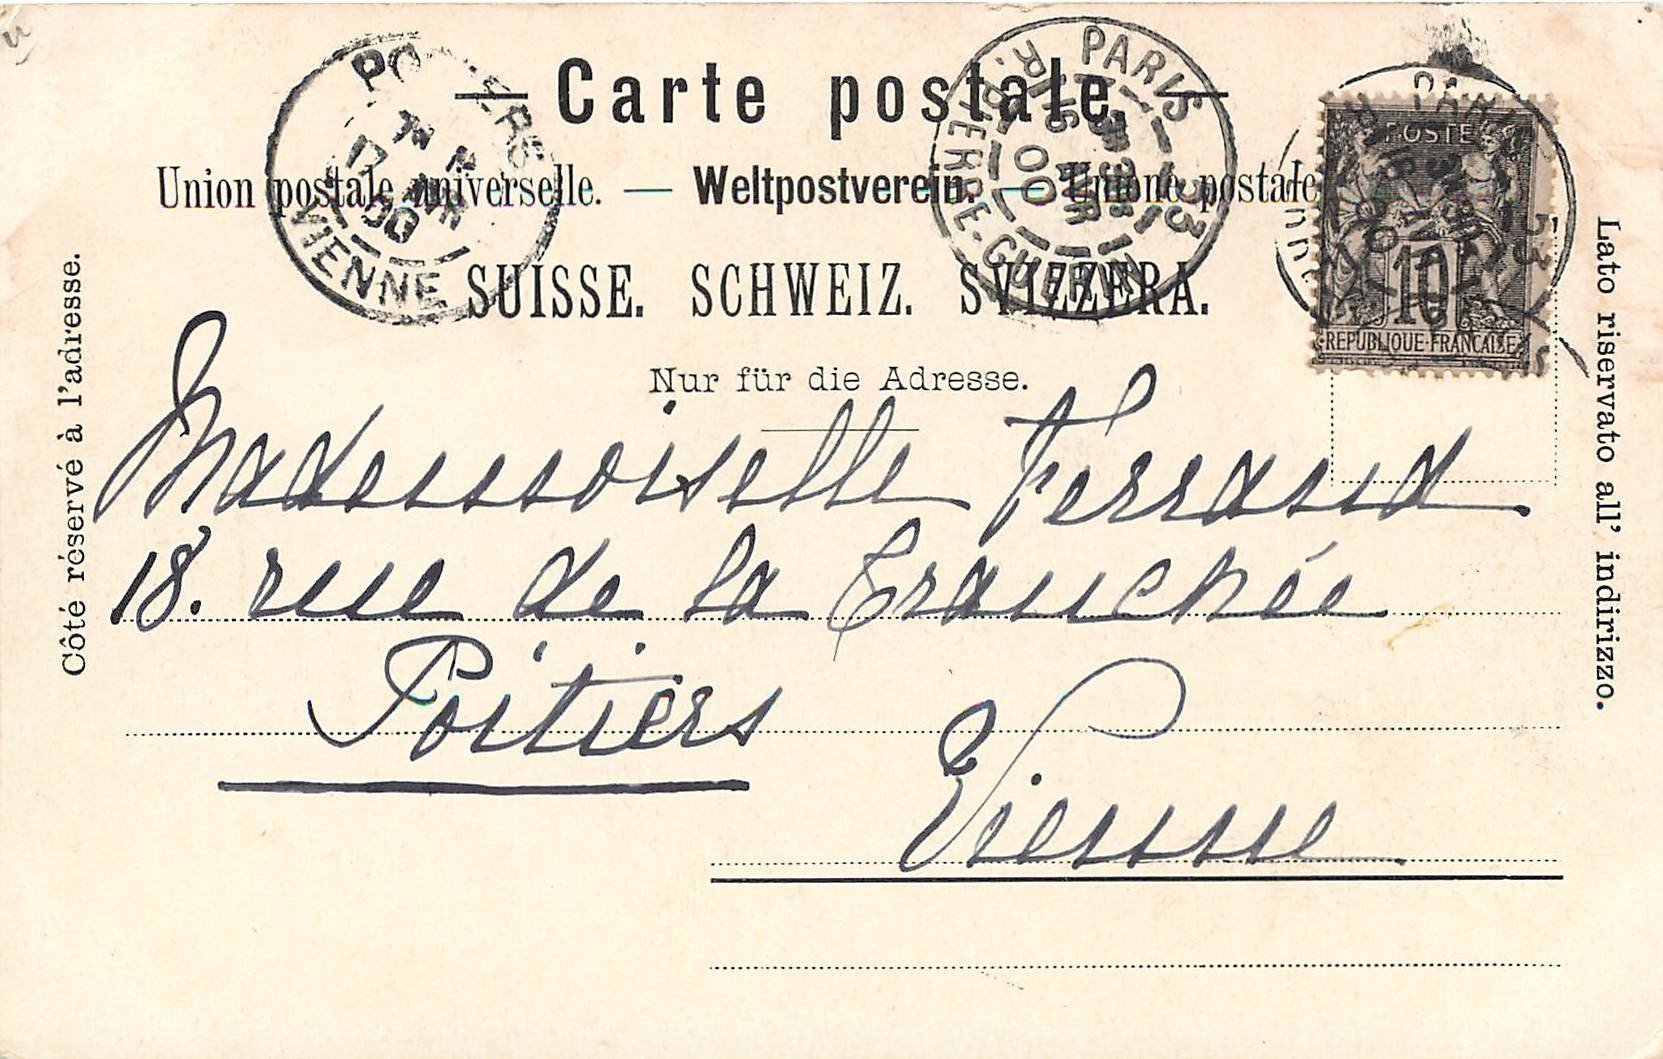 Carte postale.
Union postale universelle. — Weltpostverein. — Unione postale
SUISSE. SCHWEIZ. SVIZZERA.
Nur für die Adresse.
Côté réservé à l'adresse.
Lato riservato all' indirizzo.
POSTE
10
REPUBLIQUE FRANCAISE
POITIERS
17
00
VIENNE
PARIS 53
R. BIERRE-GUERIN
16
00
PARIS 53
Mademoiselle Ferrand
18. rue de la Tranchée
Poitiers
Vienne